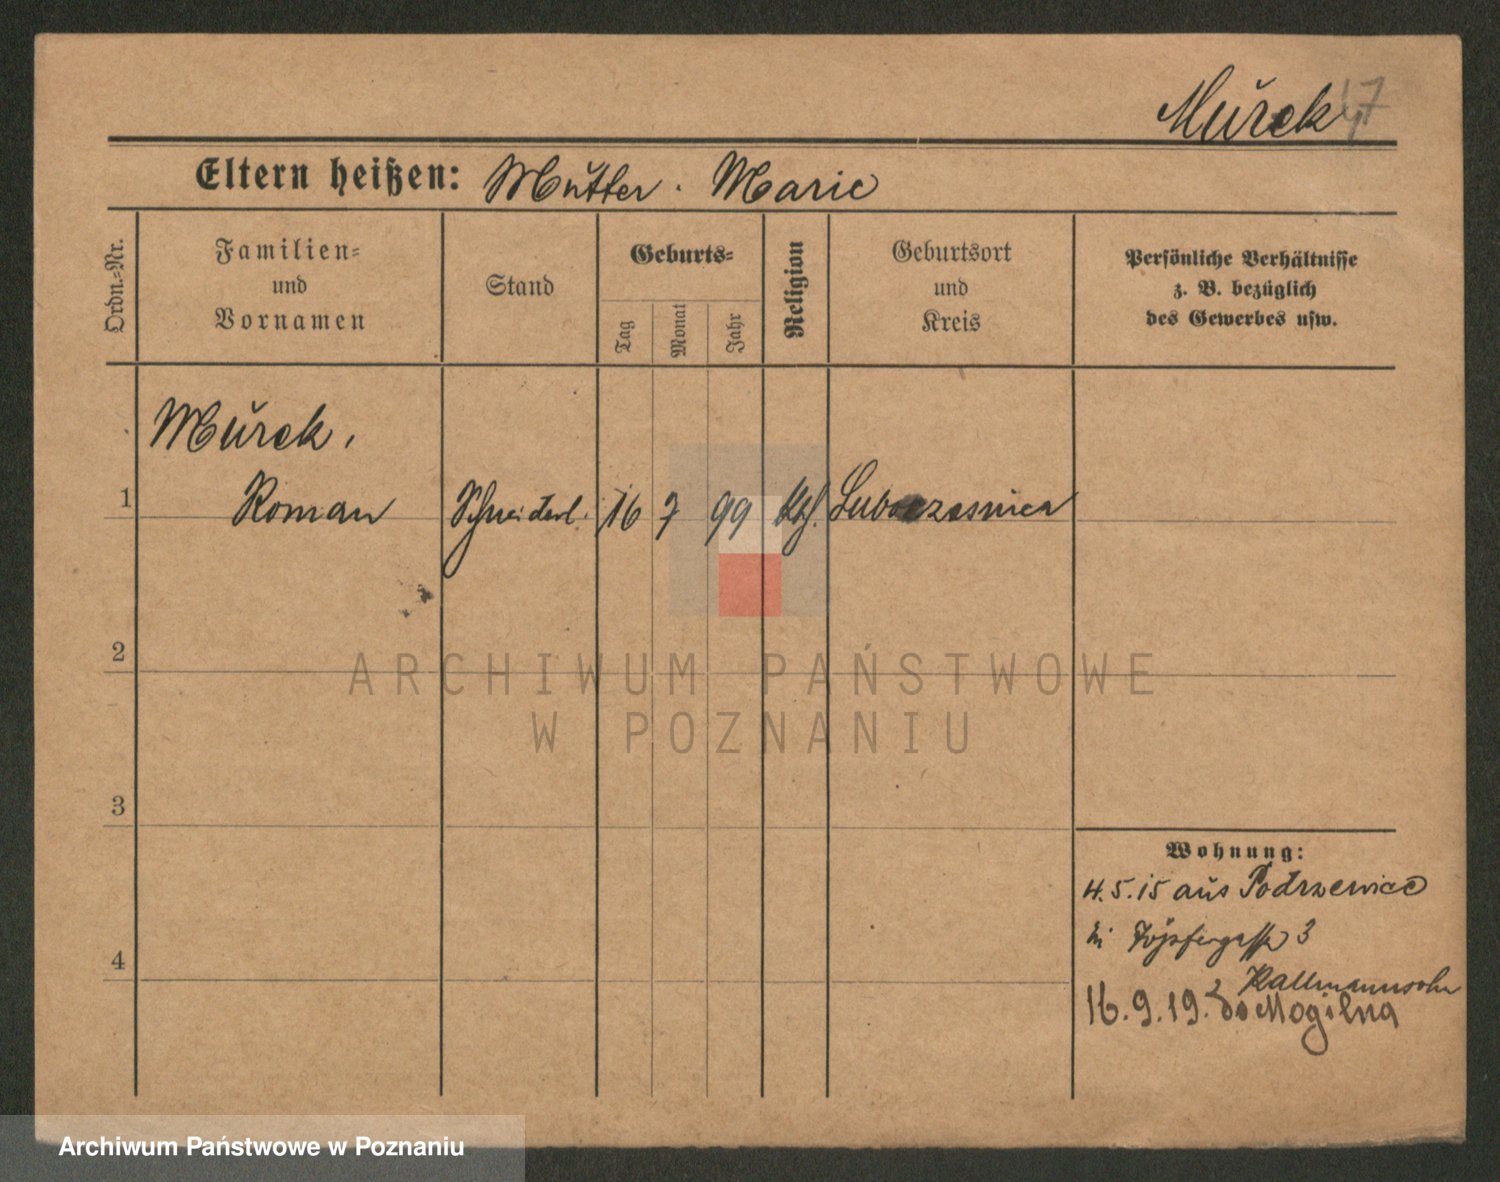 Murek 47
Eltern heißen: Mutter. Marie
Ordn.-Nr.
Familien- und Vornamen
Stand
Geburts-
Tag
Monat
Jahr
Religion
Geburtsort und Kreis
Persönliche Verhältnisse
z. B. bezüglich
des Gewerbes usw.
Murek,
1 Roman Schneiderl. 16 7 99 kth.
2
3
4
Wohnung:
4.5.15 aus Podrzewice
in Töpfergasse 3
Kallmannsohn
16.9.19. do Mogilna
ARCHIWUM PAŃSTWOWE
W POZNANIU
Archiwum Państwowe w Poznaniu